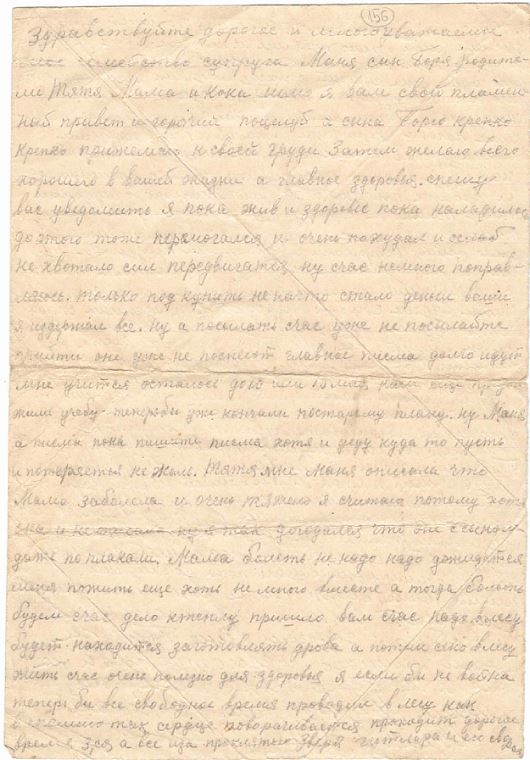 156
Здравствуйте дорогое и многоуважаемое
мое семейство супруга Маня сын Боря родите-
ли Тятя Мама и Кока шлю я вам свой пламен
ный привет и горячий поцелуй а сына Борю крепко
крепко прижемаю к своей груди. Затем желаю всего
хорошего в вашей жизни а главное здоровья. спешу
вас уведомить я пока жив и здоровье пока наладилось
до этого тоже перемогался и очень похудал и ослаб
не хватало сил передвигатся ну счас немного поправ-
ляюсь. только под купить не на что стало деньги ваши
я издержал все. Ну а посылать счас уже не посылайте
они уже не поспеют главное писма долго идут
мне учится осталось до 10 или 15 мая нам еще
жили учебу теперь бы уж кончали постарому плану. ну Маня
а писма пока пишите писма хотя и деду куда то пусть
и потеряется не жаль. Тятя мне Маня описала что
Мама заболела и очень тяжело я считаю потому хотя
она и не писала ну я так догодался что оне с сыном
даже по плакали. Мама болеть не надо надо дожидатся
меня пожить еще хоть не много вместе а тогда болеть
будем счас дело к теплу пришло вам счас надо в лесу
будет находится заготовлять дрова а потом сено в лесу
жить счас очень полезно для здоровья я если бы не война
теперь бы все свободное время проводил в лесу как
вспомню так сердце поворачивается проходит дорогое
время зря а все из за проклятого зверя гитлера и его